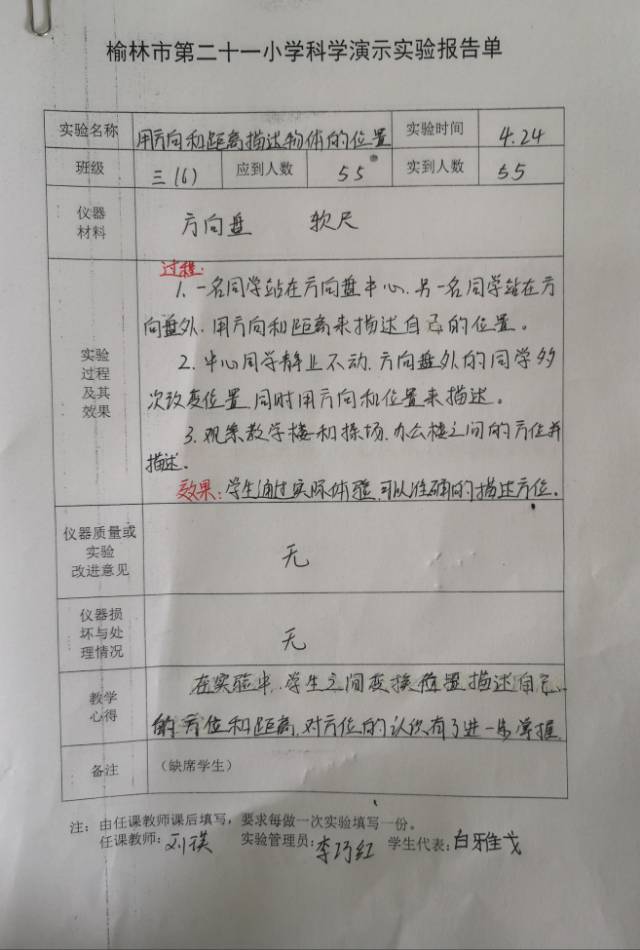 榆林市第二十一小学科学演示实验报告单
实验名称 用方向和距离描述物体的位置 实验时间 4.24
班级 三(6) 应到人数 55 实到人数 55
仪器
材料
方向盘 软尺
实验
过程
及其
效果
过程:
1. 一名同学站在方向盘中心.另一名同学站在方
向盘外.用方向和距离来描述自己的位置。
2. 中心同学静止不动.方向盘外的同学多
次改变位置.同时用方向和位置来描述。
3. 观察教学楼和操场.办公楼之间的方位并
描述。
效果:学生通过实际体验.可以准确的描述方位。
仪器质量或
实验
改进意见
无
仪器损
坏与处
理情况
无
教学
心得
在实验中.学生之间变换位置描述自己
的方位和距离.对方位的认识有了进一步掌握
备注 (缺席学生)
注:由任课教师课后填写,要求每做一次实验填写一份。
任课教师:刘瑛 实验管理员:李巧红 学生代表:白雅戈